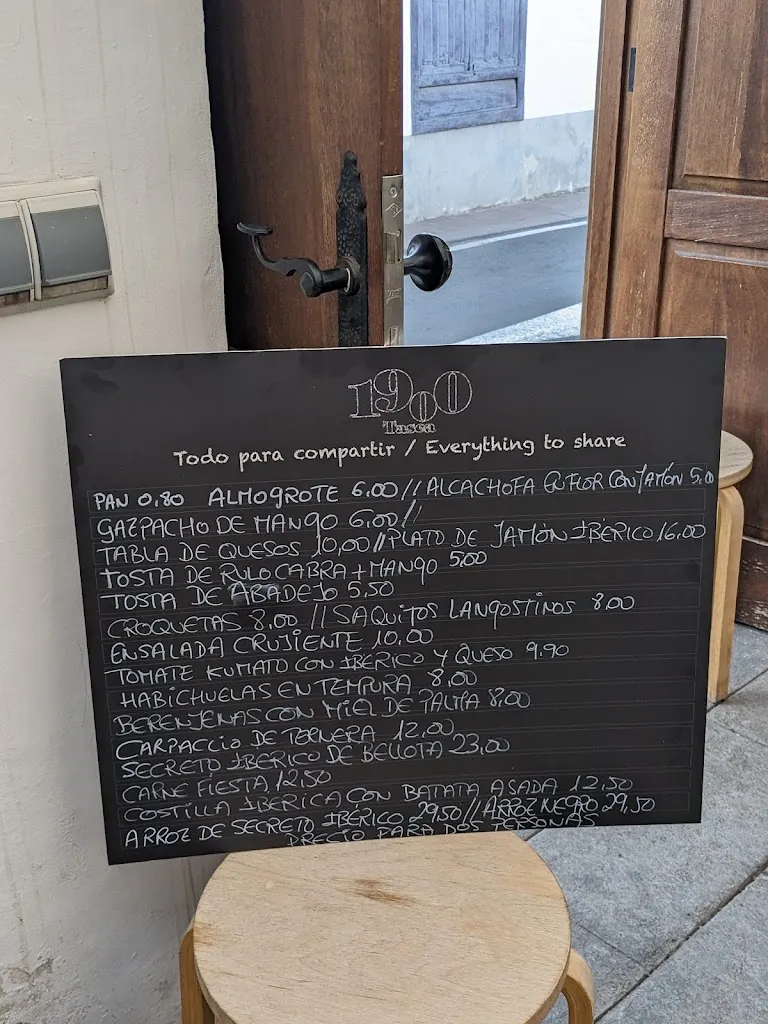 1900
Tasca
Todo para compartir / Everything to share
PAN 0.80 ALMOGROTE 6.00 // ALCACHOFA EN FLOR CON JAMÓN 5.00
GAZPACHO DE MANGO 6.00 //
TABLA DE QUESOS 10,00 // PLATO DE JAMÓN IBÉRICO 16.00
TOSTA DE RULO CABRA + MANGO 5.00
TOSTA DE ABADEJO 5.50
CROQUETAS 8.00 // SAQUITOS LANGOSTINOS 8.00
ENSALADA CRUJIENTE 10,00
TOMATE KUMATO CON IBÉRICO Y QUESO 9.90
HABICHUELAS EN TEMPURA 8,00
BERENJENAS CON MIEL DE PALMA 8,00
CARPACCIO DE TERNERA 12.00
SECRETO IBÉRICO DE BELLOTA 23,00
CARNE FIESTA 12,50
COSTILLA IBÉRICA CON BATATA ASADA 12,50
ARROZ DE SECRETO IBÉRICO 29,50 // ARROZ NEGRO 29,50
PRECIO PARA DOS PERSONAS